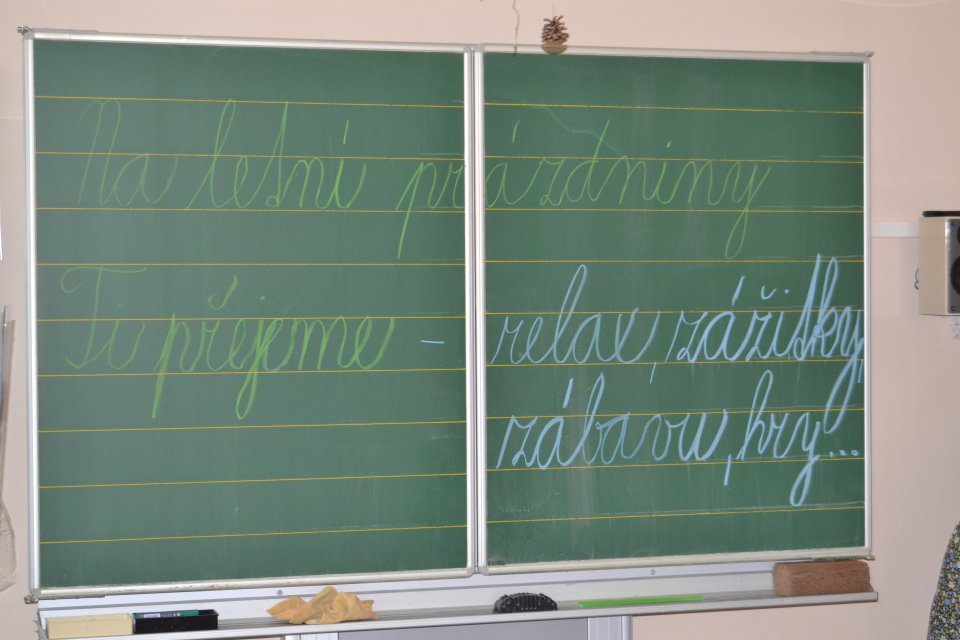 Na letní prázdniny
Ti přejeme - relax, zážitky,
zábavu, hry...